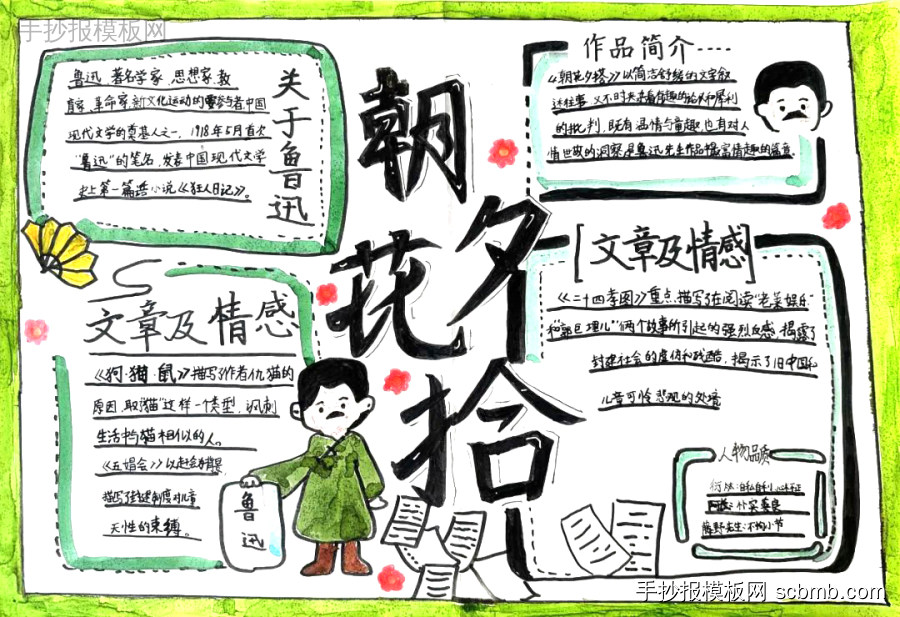 手抄报模板网
关于鲁迅
鲁迅 著名学家 思想家 教
育家 革命家 新文化运动的重要参与者 中国
现代文学的奠基人之一。1918年5月首次
"鲁迅"的笔名，发表中国现代文学
史上第一篇 小说《狂人日记》。
朝花夕拾
作品简介
《朝花夕拾》以简洁舒缓的文字叙
述往事 又不时夹杂着有趣的议论和犀利
的批判，既有温情与童趣，也有对人
情世故的洞察 是鲁迅先生作品 富情趣的篇章
文章及情感
《狗·猫·鼠》描写了作者仇猫的
原因，取"猫"这样一个类型，讽刺
生活中与猫相似的人。
《五娼会》以赶会为背景
描写了封建制度对儿童
天性的束缚。
鲁迅
[文章及情感]
《二十四孝图》重点描写了在阅读"老莱娱亲"
和"郭巨埋儿"两个故事所引起的强烈反感，揭露了
封建社会的虚伪和残酷，揭示了旧中国
儿童可怜 悲观的处境
人物品质
衍太:自私自利
阿长:朴实善良
藤野先生:不拘小节
手抄报模板网 scbmb.com